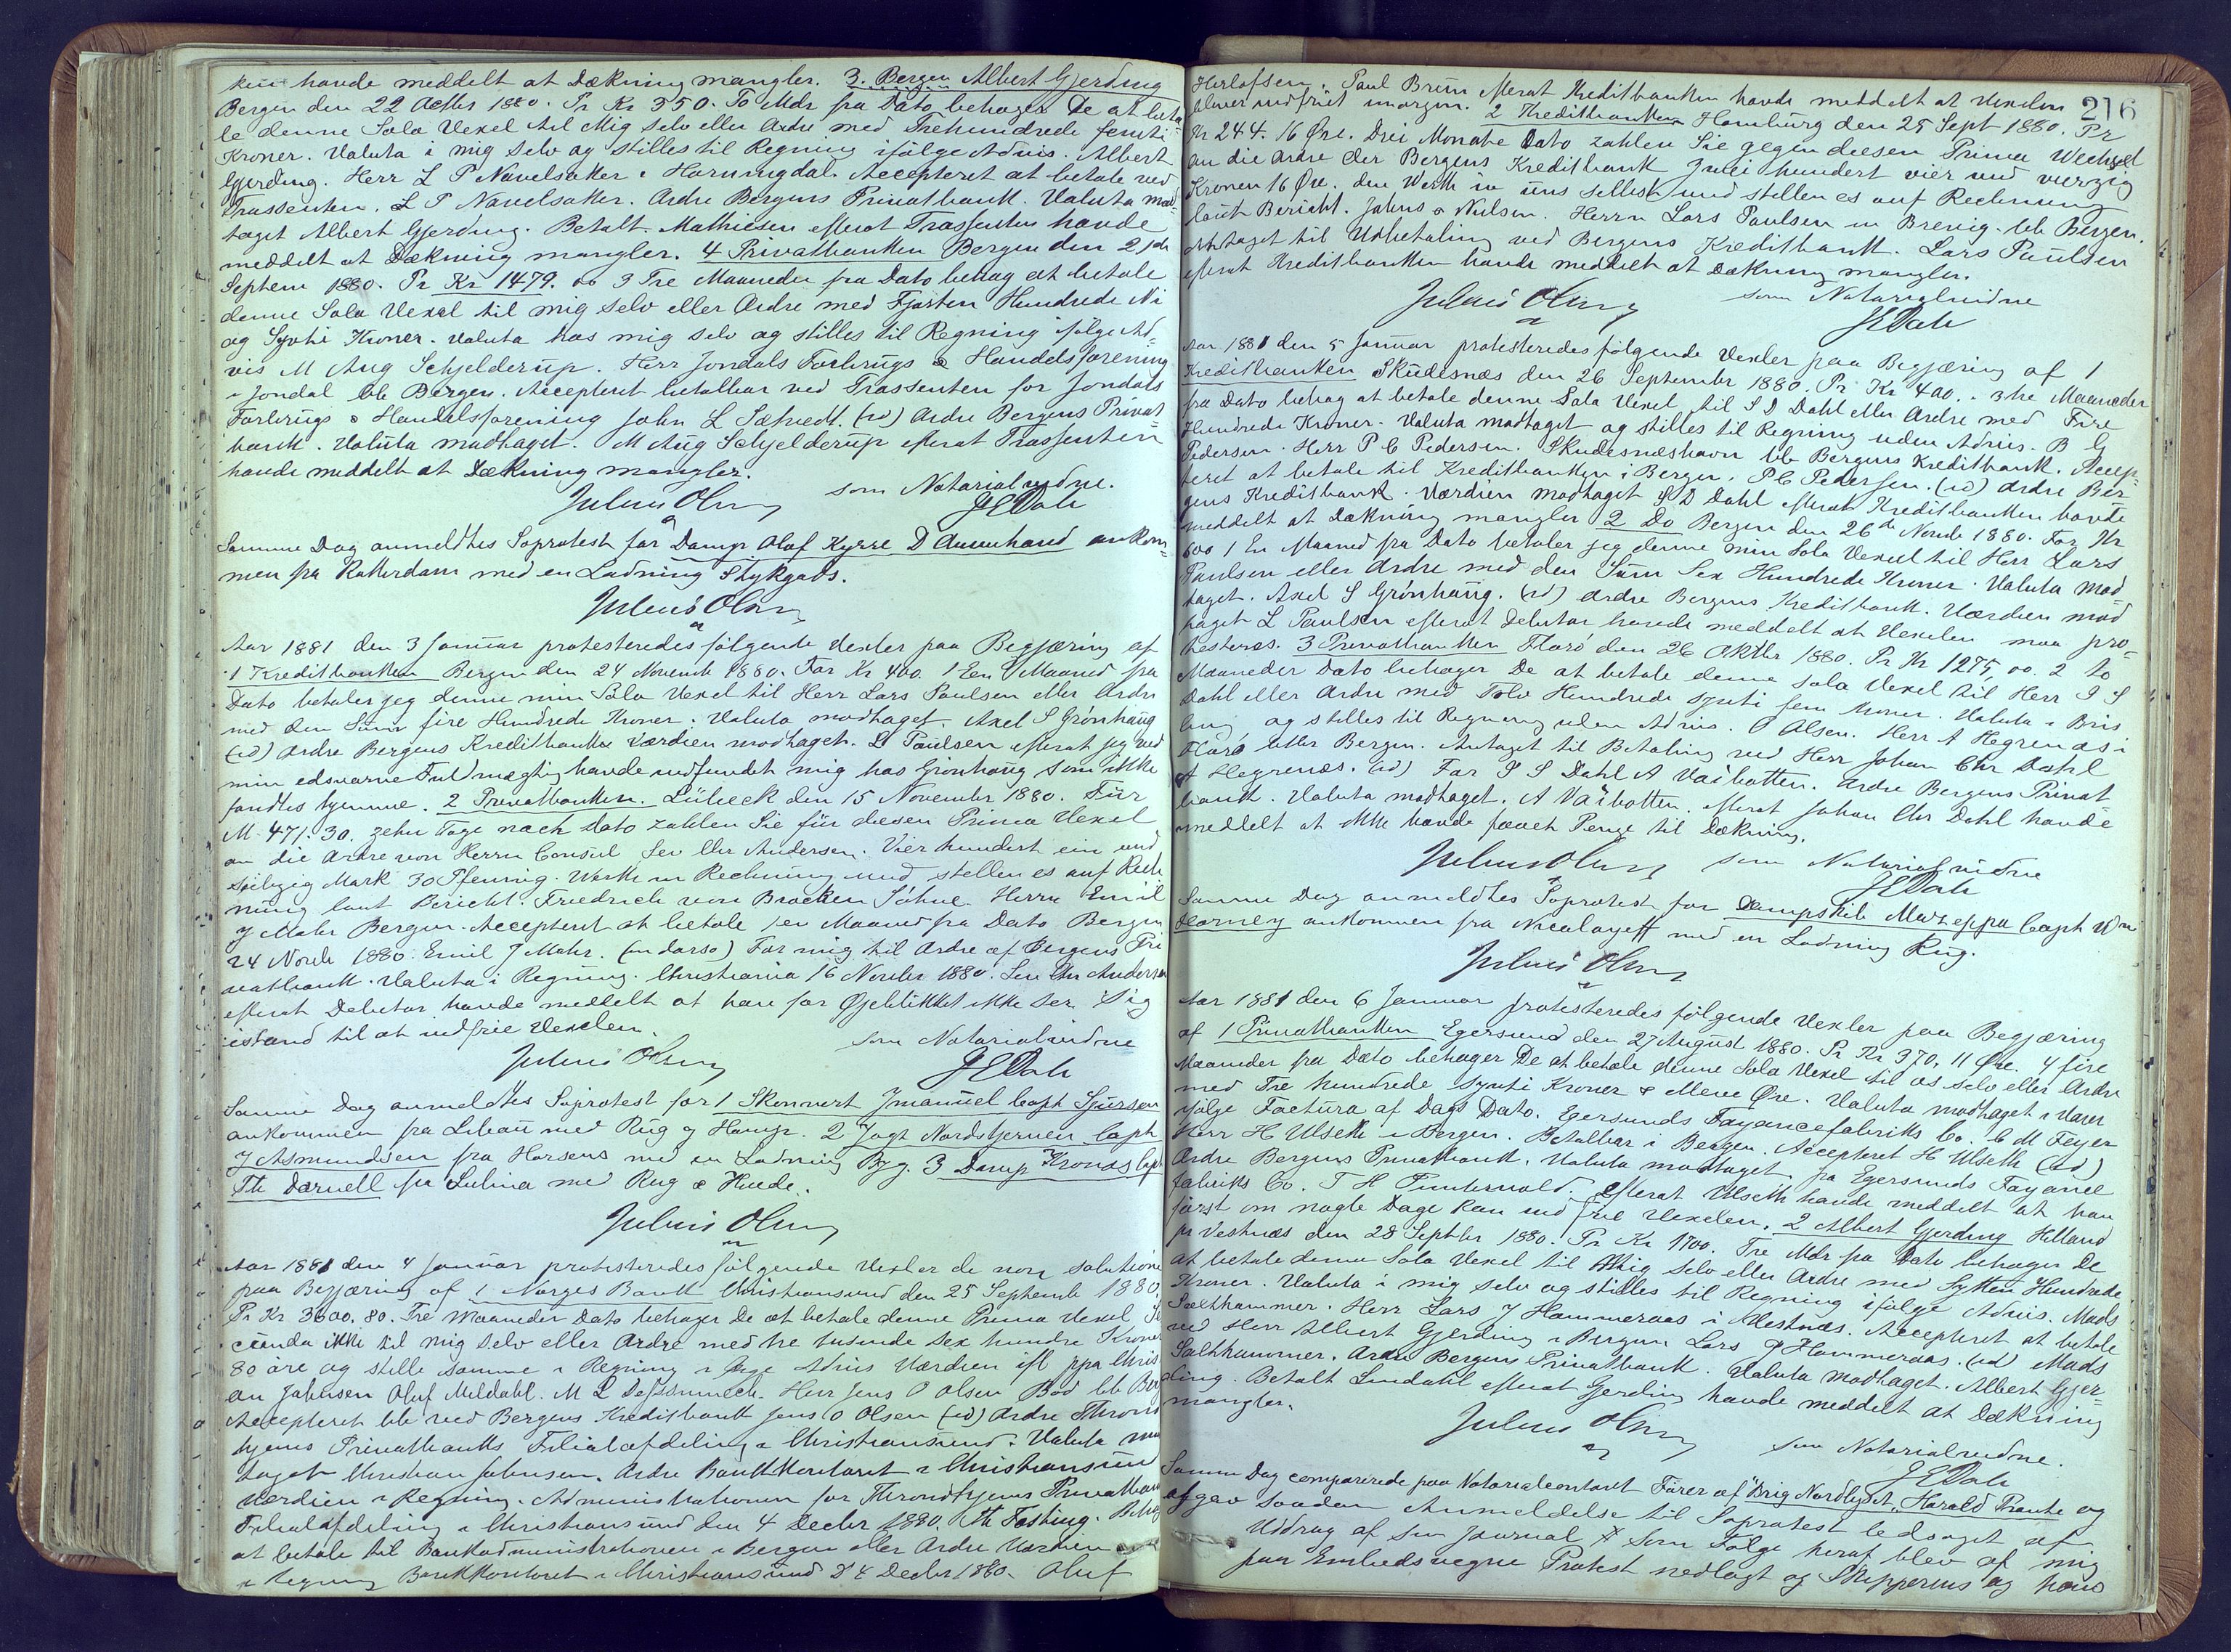 ken havde meddelt at Dækning mangler. 3. Bergen Albert Gjerding
Bergen den 22 Octbr 1880. Pr Kr 350. To Mdr fra Dato behager De at beta
le denne Sola Vexel til Mig selv eller Ordre med Trehundrede femti
Kroner. Valuta i mig selv og stilles til Regning ifølge Advis. Albert
Gjerding. Herr L P Navelsaker i Hornindal. Accepteret at betale ved
Trassenten. L P Navelsaker. Ordre Bergens Privatbank. Valuta mod-
taget Albert Gjerding. Betalt. Mathiesen efterat Trassenten havde
meddelt at Dækning mangler. 4 Privatbanken Bergen den 21de
Septem 1880. Pr Kr 1479. 00 3 Tre Maaneder fra Dato behag at betale
denne Sola Vexel til mig selv eller Ordre med Fjorten Hundrede Ni
og Sytti Kroner. Valuta hos mig selv og stilles til Regning ifølge Ad-
vis M Aug Schjelderup. Herr Jondals Forbrugs & Handelsforening
i Jondal bb Bergen. Accepteret betalbar ved Trassenten for Jondals
Forbrugs & Handelsforening John L Sætvedt. (rd) Ordre Bergens Privat
bank. Valuta modtaget. M Aug Schjelderup efterat Trassenten
havde meddelt at Dækning mangler.
Julius Olsen som Notarialvidne.
J E Dale
Samme Dag anmeldtes Søprotest for Damp Olaf Kyrre D ankom
men fra Rotterdam med en Ladning Stykgods.
Julius Olsen
Aar 1881 den 3 Januar protesteredes følgende Vexler paa Begjæring af
1 Kreditbanken Bergen den 24 Novemb 1880. For Kr 400. 1 En Maaned fra
Dato betaler jeg denne min Sola Vexel til Herr Lars Paulsen eller Ordre
med den Sum fire Hundrede Kroner. Valuta modtaget. Axel S Grønhaug
(rd) Ordre Bergens Kreditbank Værdien modtaget. L Paulsen efterat jeg ved
min edsvorne Fuldmægtig havde indfundet mig hos Grønhaug som ikke
fandtes hjemme. 2 Privatbanken. Lübeck den 15 November 1880. Für
M 471.30. zehn Tage nach dato zahlen Sie für diesen Prima Vexel
an die Ordre von Herrn Consul Sev Chr Andersen. Vier hundert ein und
siebzig Mark 30 Pfennig. Werth in Rechnung und stellen es auf Rech
nung laut Bericht. Friedrich von Brocken Söhne Herrn Emil
J Mohr Bergen. Accepteret at betale en Maaned fra Dato Bergen
24 Novb 1880. Emil J Mohr. (in dorso) For mig til Ordre af Bergens Pri
vatbank. Valuta i Regning. Christiania 16 Novbr 1880. Sev Chr Andersen
efterat Debitor havde meddelt at han for Øjeblikket ikke ser Sig
istand til at indfrie Vexelen.
Julius Olsen som Notarialvidne
J E Dale
Samme Dag anmeldtes Søprotest for 1 Skonnert Imanuel Capt
ankommen fra Libau med Rug og Hamp. 2 Jagt Nordstjernen Capt
J Asmundsen fra Horsens med en Ladning Byg. 3 Damp Kronos Capt
Th Darnell fra Sulina med Rug & Hvede.
Julius Olsen
Aar 1881 den 4 Januar protesteredes følgende Vexler de non solutione
paa Begjæring af 1 Norges Bank Christiansund den 25 Septemb 1880.
Pr Kr 3600.80. Tre Maaneder Dato behager De at betale denne Prima Vexel Se
cunda ikke til Mig selv eller Ordre med tre tusinde sex hundre Kroner
80 øre og stille samme i Regning i Advis Værdien ppa Chris
an Johnsen Oluf Meldahl. M L Herr Jens O Olsen Bod bb Ber
Accepteret bb ved Bergens Kreditbank Jens O Olsen (rd) Ordre Thrond
hjems Privatbanks Filialafdeling i Christiansund. Valuta mod
taget Christian Johnsen. Ordre Bankkontoret i Christiansund
Værdien i Regning. Administrationen for Throndhjems Privatbank
Filialafdeling i Christiansund den 4 Decbr 1880. Th Fasting.
at betale til Bankadministrationen i Bergen eller Ordre Værdien
i Regning Bankkontoret i Christiansund d 4 Decbr 1880. Oluf
216
Herlofsen. Paul Bruun efterat Kreditbanken havde meddelt at Vexelen
bliver indfriet imorgen. 2 Kreditbanken Hamburg den 25 Sept 1880. Pr
Kr 244. 16 Øre. Drei Monate Dato zahlen Sie gegen diesen Prima Wechsel
an die Ordre der Bergens Kreditbank Zwei hundert vier und vierzig
Kronen 16 Øre. den Werth in uns selbst und stellen es auf Rechnung
laut Bericht. Johns & Nielsen. Herrn Lars Paulsen in Brevig bb Bergen.
Antaget til Udbetaling ved Bergens Kreditbank. Lars Paulsen
efterat Kreditbanken havde meddelt at Dækning mangler.
Julius Olsen som Notarialvidne
J E Dale
Aar 1881 den 5 Januar protesteredes følgende Vexler paa Begjæring af 1
Kreditbanken Skudesnæs den 26 September 1880. Pr Kr 400. . 3 tre Maaneder
fra Dato behag at betale denne Sola Vexel til S D Dahl eller Ordre med Fire
Hundrede Kroner. Valuta modtaget og stilles til Regning uden Advis. B G
Pedersen. Herr P C Pedersen. Skudesnæshavn bb Bergens Kreditbank. Accep
teret at betale til Kreditbanken i Bergen. P C Pedersen. (rd) Ordre Ber
gens Kreditbank. Værdien modtaget S D Dahl efterat Kreditbanken havde
meddelt at Dækning mangler 2 Do Bergen den 26de Novbr 1880. For Kr
600 1 En Maaned fra Dato betaler jeg denne min Sola Vexel til Herr Lars
Paulsen eller Ordre med den Sum Sex Hundrede Kroner. Valuta mod
taget. Axel S Grønhaug. (rd) Ordre Bergens Kreditbank. Værdien mod
taget L Paulsen efterat Debitor havde meddelt at Vexelen maa pro-
testeres. 3 Privatbanken Florø den 26 Oktbr 1880. Pr Kr 1275,00. 2 to
Maaneder Dato behager De at betale denne Sola Vexel til Herr P S
Dahl eller Ordre med Tolv Hundrede sytti fem Kroner. Valuta i Bris
ling og stilles til Regning uden Advis. O Olsen. Herr A Hegrenæs i
Florø eller Bergen. Antaget til Betaling ved Herr Johan Chr Dahl
A Hegrenæs. (rd) For P S Dahl A Vaibotten. Ordre Bergens Privat
bank. Valuta modtaget. A Vaibotten efterat Johan Chr Dahl havde
meddelt at ikke havde faaet Penge til Dækning.
Julius Olsen som Notarialvidne
J E Dale
Samme Dag anmeldtes Søprotest for Dampskib Mazeppa Capt Wm
Harney ankommen fra Nicolajeff med en Ladning Rug.
Julius Olsen
Aar 1881 den 6 Januar protesteredes følgende Vexler paa Begjæring
af 1 Privatbanken Egersund den 27 August 1880. Pr Kr 370, 11 Øre. 4 fire
Maaneder fra Dato behager De at betale denne Sola Vexel til os selv eller Ordre
med Tre hundrede sytti Kroner & elleve Øre. Valuta modtaget i Varer
ifølge Factura af Dags Dato. Egersunds Fayancefabriks Co. C M Feyer
Herr H Ulseth i Bergen. Betalbar i Bergen. Accepteret H Ulseth (rd)
Ordre Bergens Privatbank. Valuta modtaget fra Egersunds Fayance
fabriks Co. T H Puntervold. efterat Ulseth havde meddelt at han
først om nogle Dage kan indfrie Vexelen. 2 Albert Gjerding Helland
pr Vestnæs den 28 Septbr 1880. Pr Kr 1700. Tre Mdr fra Dato behager De
at betale denne Sola Vexel til Mig selv eller Ordre med Sytten Hundrede
Kroner. Valuta i mig selv og stilles til Regning ifølge Advis. Mads
Salthammer. Herr Lars J Hammeraas i Vestnæs. Accepteret at betale
ved Herr Albert Gjerding i Bergen Lars J Hammeraas. (rd) Mads
Salthammer. Ordre Bergens Privatbank. Valuta modtaget. Albert Gjer-
ding. Betalt Lindahl efterat Gjerding havde meddelt at Dækning
mangler.
Julius Olsen som Notarialvidne.
J E Dale
Samme Dag comparerede paa Notarialcontoret Fører af Brig Nordlyset, Harald Thante og
afgav saadan Anmeldelse til Søprotest ledsaget af
Uddrag af sin Journal & Som Følge heraf blev af mig
paa Embedsvegne Protest nedlagt og Skipperens og hans